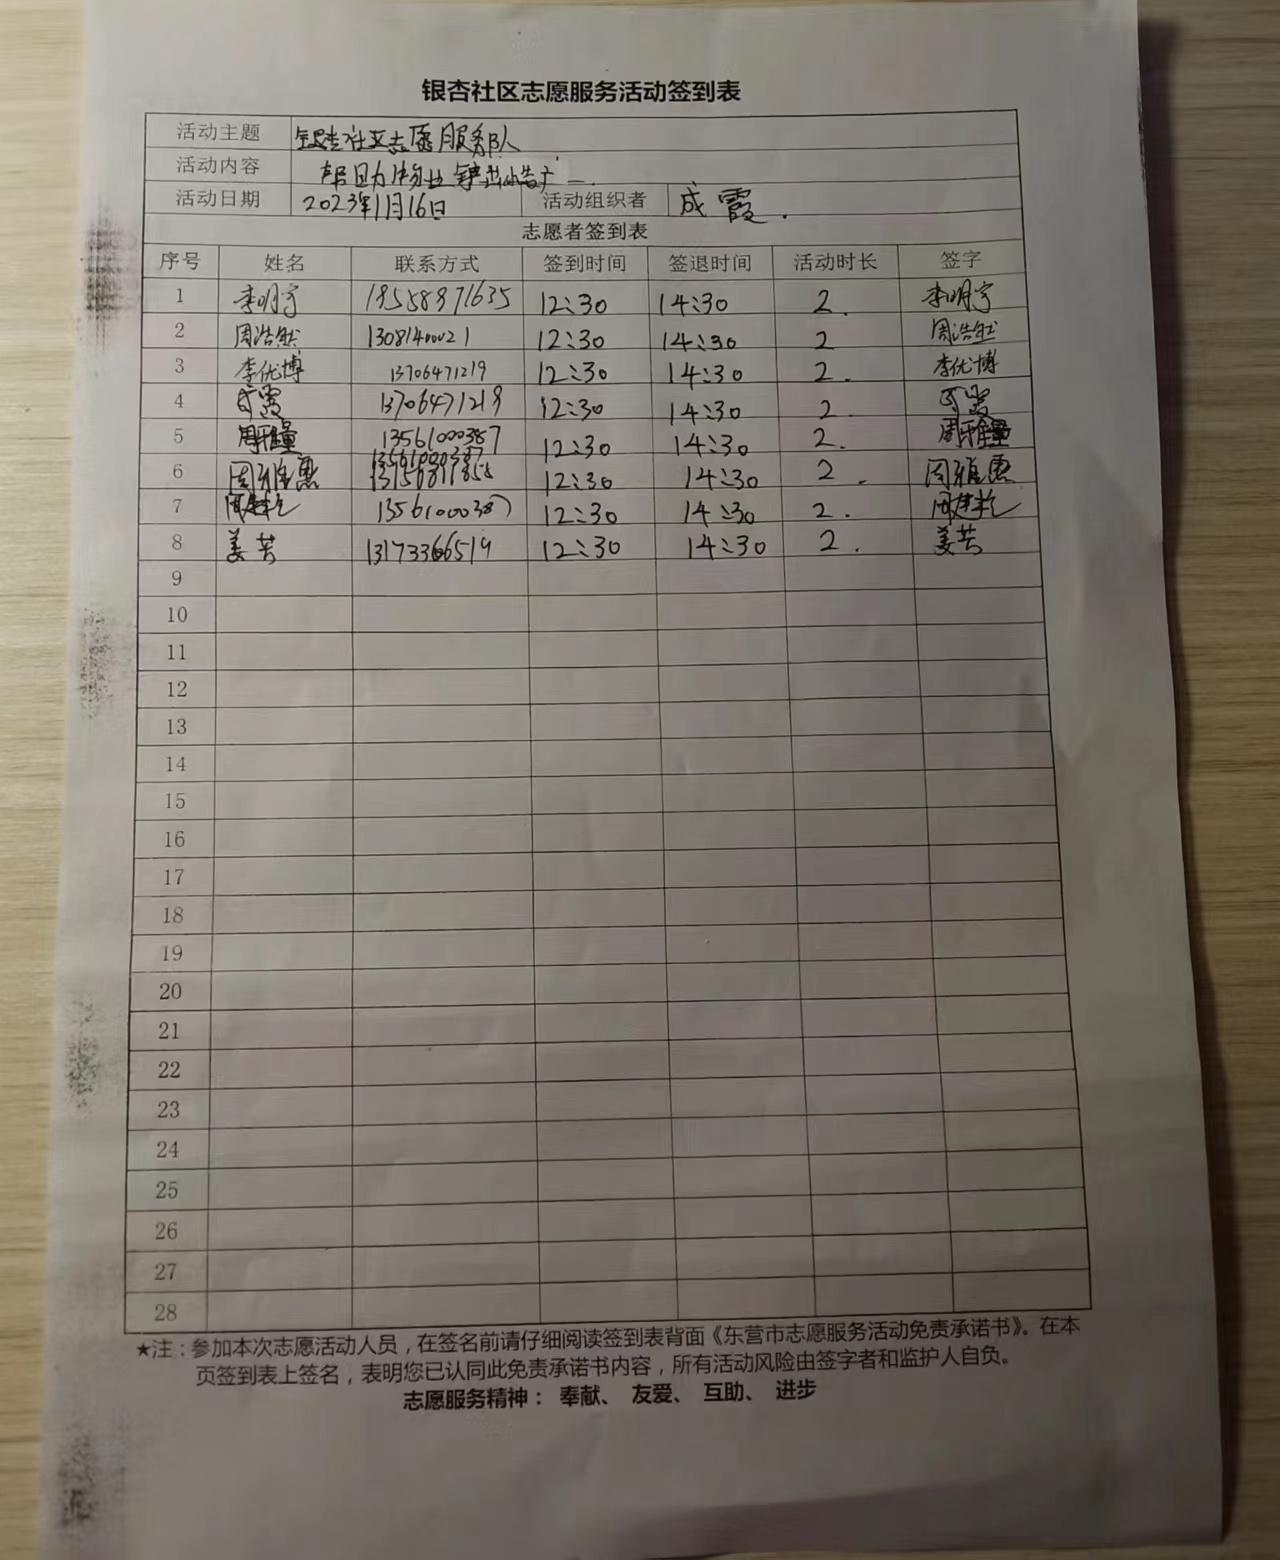 银杏社区志愿服务活动签到表
活动主题 银杏社区志愿服务队
活动内容 帮助物业铲出小告广
活动日期 2023年1月16日 活动组织者 成霞.
志愿者签到表
序号 姓名 联系方式 签到时间 签退时间 活动时长 签字
1 李明宇 18558971635 12:30 14:30 2. 李明宇
2 周浩然 13081400021 12:30 14:30 2 周浩然
3 李优博 13706471219 12:30 14:30 2. 李优博
4 13706471219 12:30 14:30 2.
5 13561000387 12:30 14:30 2.
6 周雅惠 12:30 14:30 2. 周雅惠
7 13561000387 12:30 14:30 2.
8 姜芳 13173366519 12:30 14:30 2. 姜芳
9
10
11
12
13
14
15
16
17
18
19
20
21
22
23
24
25
26
27
28
★注：参加本次志愿活动人员，在签名前请仔细阅读签到表背面《东营市志愿服务活动免责承诺书》。在本
页签到表上签名，表明您已认同此免责承诺书内容，所有活动风险由签字者和监护人自负。
志愿服务精神： 奉献、 友爱、 互助、 进步